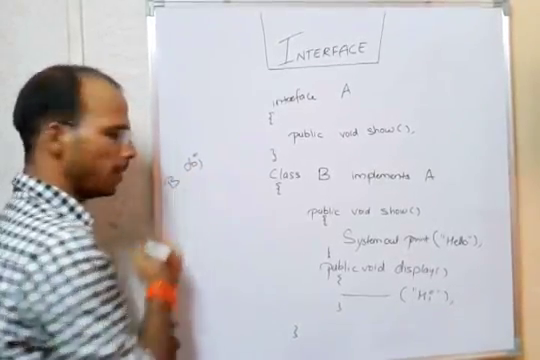 INTERFACE
interface A
{
public void show();
}
Class B implements A
{
public void show()
{
System out print ("Hello");
}
public void display()
{
——— ("Hi");
}
}
B